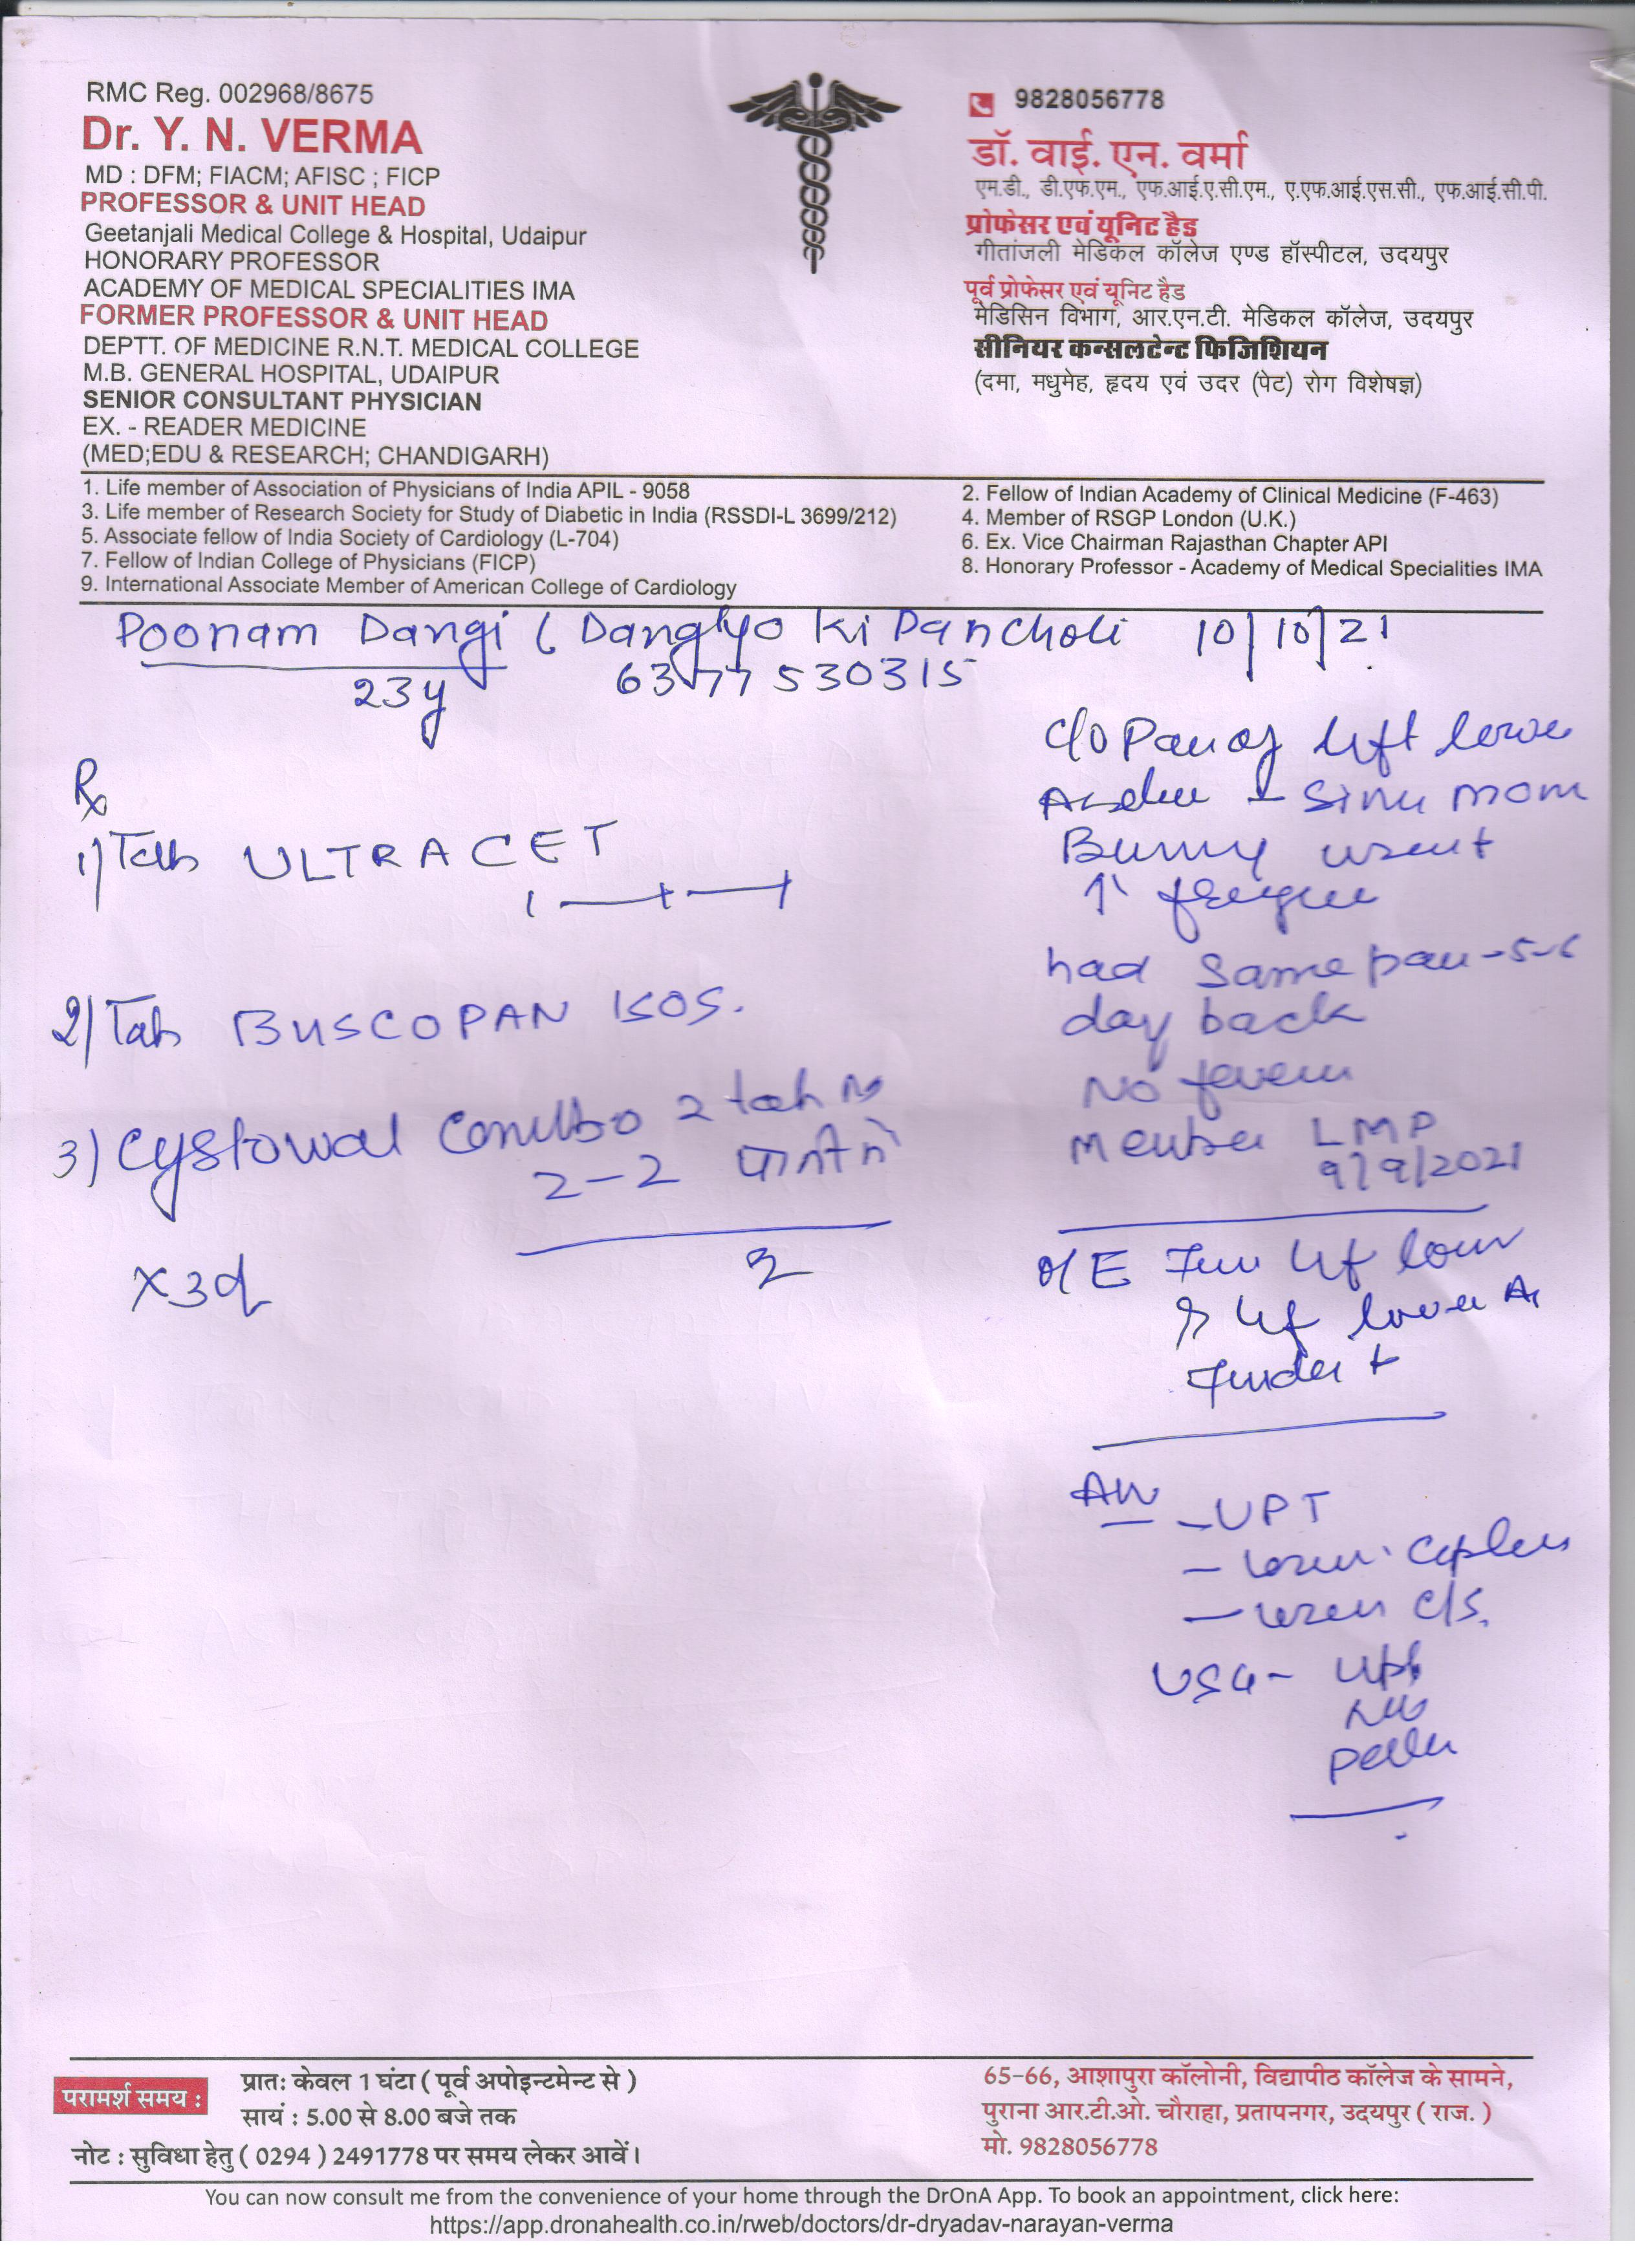 RMC Reg. 002968/8675
Dr. Y. N. VERMA
MD : DFM; FIACM; AFISC ; FICP
PROFESSOR & UNIT HEAD
Geetanjali Medical College & Hospital, Udaipur
HONORARY PROFESSOR
ACADEMY OF MEDICAL SPECIALITIES IMA
FORMER PROFESSOR & UNIT HEAD
DEPTT. OF MEDICINE R.N.T. MEDICAL COLLEGE
M.B. GENERAL HOSPITAL, UDAIPUR
SENIOR CONSULTANT PHYSICIAN
EX. - READER MEDICINE
(MED;EDU & RESEARCH; CHANDIGARH)
9828056778
डॉ. वाई. एन. वर्मा
एम.डी., डी.एफ.एम., एफ.आई.ए.सी.एम., ए.एफ.आई.एस.सी., एफ.आई.सी.पी.
प्रोफेसर एवं यूनिट हैड
गीतांजली मेडिकल कॉलेज एण्ड हॉस्पीटल, उदयपुर
पूर्व प्रोफेसर एवं यूनिट हैड
मेडिसिन विभाग, आर.एन.टी. मेडिकल कॉलेज, उदयपुर
सीनियर कन्सलटेन्ट फिजिशियन
(दमा, मधुमेह, हृदय एवं उदर (पेट) रोग विशेषज्ञ)
1. Life member of Association of Physicians of India APIL - 9058
2. Fellow of Indian Academy of Clinical Medicine (F-463)
3. Life member of Research Society for Study of Diabetic in India (RSSDI-L 3699/212)
4. Member of RSGP London (U.K.)
5. Associate fellow of India Society of Cardiology (L-704)
6. Ex. Vice Chairman Rajasthan Chapter API
7. Fellow of Indian College of Physicians (FICP)
8. Honorary Professor - Academy of Medical Specialities IMA
9. International Associate Member of American College of Cardiology
Poonam Dangi ( Dangiyo Ki Pancholi 10/10/21
23y 6377530315
Rx
1) Tab ULTRACET
2) Tab BUSCOPAN
3) Cystowal Combo 2 tab
2-2
x3d
c/o Pain of left lower
Burning
↑
had same pain - 5-6
day back
No fever
LMP
9/9/2021
O/E
left lower
Tender +
Adv - UPT
- c/s.
USG -
परामर्श समय :
प्रातः केवल 1 घंटा ( पूर्व अपोइन्टमेन्ट से )
सायं : 5.00 से 8.00 बजे तक
नोट : सुविधा हेतु ( 0294 ) 2491778 पर समय लेकर आवें।
65-66, आशापुरा कॉलोनी, विद्यापीठ कॉलेज के सामने,
पुराना आर.टी.ओ. चौराहा, प्रतापनगर, उदयपुर ( राज. )
मो. 9828056778
You can now consult me from the convenience of your home through the DrOnA App. To book an appointment, click here:
https://app.dronahealth.co.in/rweb/doctors/dr-dryadav-narayan-verma